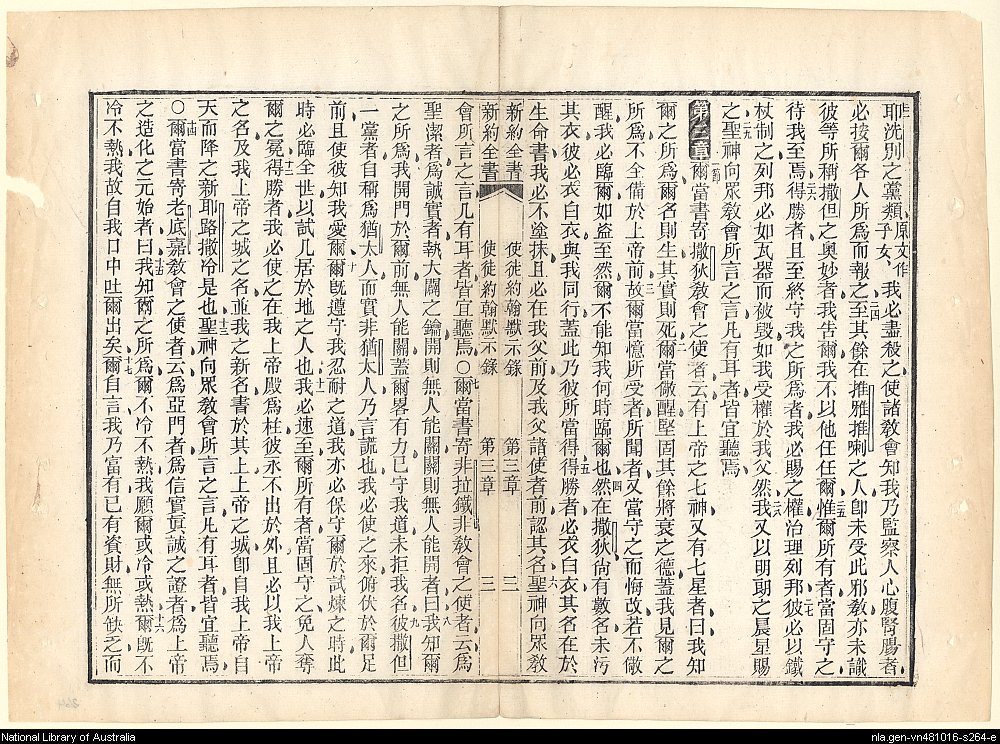 耶洗別之黨類原文作子女、我必盡殺之使諸敎會知我乃監察人心腹腎腸者
必按爾各人所爲而報之至其餘在推雅推喇之人卽未受此邪敎亦未識
彼等所稱撒但之奧妙者我告爾我不以他任任爾惟爾所有者當固守之
待我至焉得勝者且至終守我之所爲者我必賜之權治理列邦彼必以鐵
杖制之列邦必如瓦器而被毀如我受權於我父然我又以明朗之晨星賜
之聖神向衆敎會所言之言凡有耳者皆宜聽焉
第三章爾當書寄撒狄敎會之使者云有上帝之七神又有七星者曰我知
爾之所爲爾名則生其實則死爾當儆醒堅固其餘將衰之德蓋我見爾之
所爲不全備於上帝前故爾當憶所受者所聞者又當守之而悔改若不儆
醒我必臨爾如盜至然爾不能知我何時臨爾也然在撒狄尙有數名未污
其衣彼必衣白衣與我同行蓋此乃彼所當得得勝者必衣白衣其名在於
生命書我必不塗抹且必在我父前及我父諸使者前認其名聖神向衆敎
新約全書 使徒約翰默示錄 第三章 三
新約全書 使徒約翰默示錄 第三章 三
會所言之言凡有耳者皆宜聽焉○爾當書寄非拉鐵非敎會之使者云爲
聖潔者爲誠實者執大闢之鑰開則無人能關關則無人能開者曰我知爾
之所爲我開門於爾前無人能關蓋爾畧有力已守我道未拒我名彼撒但
一黨者自稱爲猶太人而實非猶太人乃言謊也我必使之來俯伏於爾足
前且使彼知我愛爾爾旣遵守我忍耐之道我亦必保守爾於試煉之時此
時必臨全世以試凡居於地之人也我必速至爾所有者當固守之免人奪
爾之冕得勝者我必使之在我上帝殿爲柱彼永不出於外且必以我上帝
之名及我上帝之城之名並我之新名書於其上上帝之城卽自我上帝自
天而降之新耶路撒冷是也聖神向衆敎會所言之言凡有耳者皆宜聽焉
○爾當書寄老底嘉敎會之使者云爲亞門者爲信實眞誠之證者爲上帝
之造化之元始者曰我知爾之所爲爾不冷不熱我願爾或冷或熱爾旣不
冷不熱我故自我口中吐爾出矣爾自言我乃富有已有資財無所缺乏而
National Library of Australia
nla.gen-vn481016-s264-e